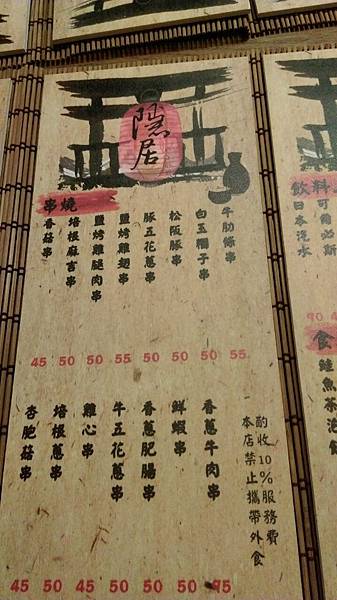 隱居
串燒
牛肋條串
白玉帽子串
松阪豚串
豚五花蔥串
鹽烤雞翅串
鹽烤雞腿肉串
培根麻吉串
香菇串
45 50 50 55 50 50 50 55
香蔥牛肉串
鮮蝦串
香蔥肥腸串
牛五花蔥串
雞心串
培根蔥串
杏鮑菇串
45 50 45 50 50 50 95
酌收10%服務費
本店禁止攜帶外食
飲料
可爾必斯
日本汽水
90
食
鮭魚茶泡飯